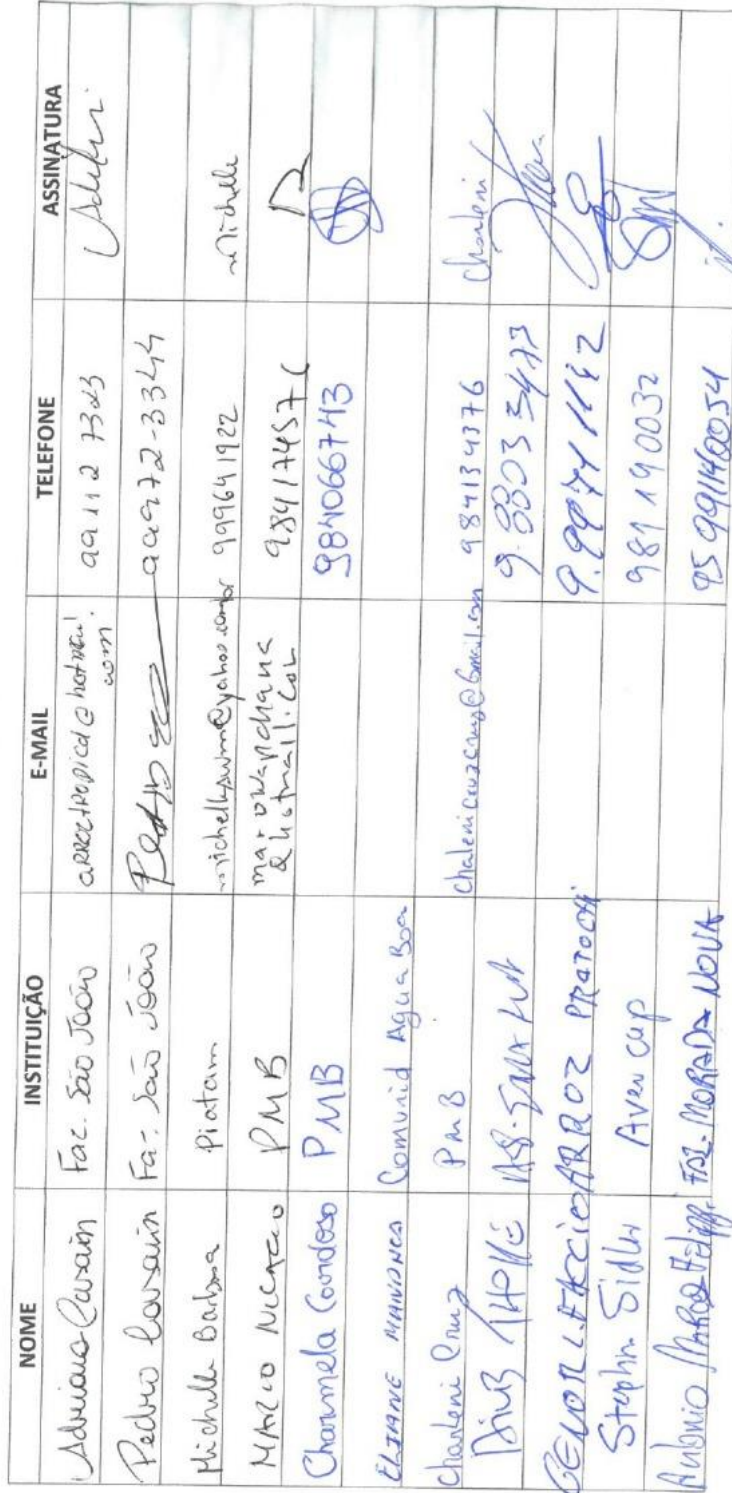 NOME INSTITUIÇÃO E-MAIL TELEFONE ASSINATURA
Adriana Casarin Faz. São João arroztropical@hotmail.com 99112 7323
Pedro Casarin Faz. São João Pedro 99972-3344
Michelle Barbosa Piatam michellypwm@yahoo.com.br 999641922 Michelle
MARCIO NICACIO PMB marowapichana@hotmail.com 984174576
Charmela Cardoso PMB 984066743
ELIANE Comunid Agua Boa
Charleni Cruz PMB chalenicruzcruz@Gmail.com 984134376 Charleni
9.8803 3473
GENOR L. FACCIO ARROZ PRATOCHI
Stephn Sidler Aver cup 981190032
Antônio FAZ. MORADA NOVA 95 991140054